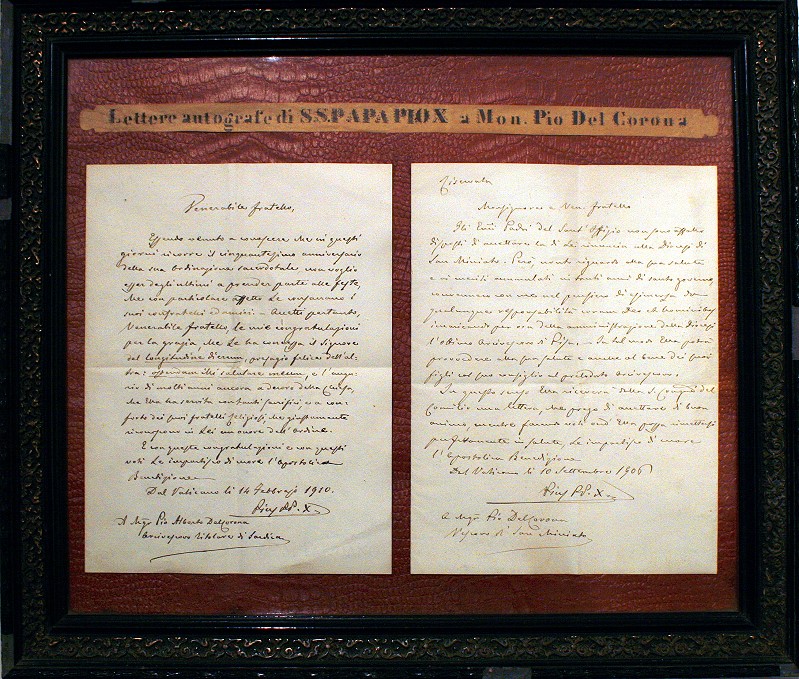 Lettere autografe di S.S. PAPA PIO X a Mon. Pio Del Corona
Venerabile fratello,
Essendo venuto a conoscere che in questi
giorni ricorre il cinquantesimo anniversario
della sua Ordinazione sacerdotale, non voglio
esser degli ultimi a prender parte alla festa,
che con particolare affetto Le consacrano i
suoi confratelli ed amici. Accetti pertanto,
Venerabile fratello, le mie congratulazioni
per la grazia, che Le ha concessa il Signore
del longitudine dierum, presagio felice dell'al-
tra: ostendam illi salutare meum, e l'augu-
rio di molti anni ancora a decoro della Chiesa,
che Ella ha servita con tanti sacrifici e a con-
forto dei suoi fratelli Religiosi, che giustamente
riconoscono in Lei un onore dell'Ordine.
E con queste congratulazioni e con questi
voti Le impartisco di cuore l'Apostolica
Benedizione
Dal Vaticano li 14 febbrajo 1910.
Pius PP. X
A Mgr Pio Alberto Del Corona
Arcivescovo titolare di Sardica
Riservata
Monsignore e Ven. fratello
Gli Emi Padri del Sant' Offizio non sono affatto
disposti di accettare la di Lei rinuncia alla Diocesi di
San Miniato. Però, avuti riguardi alla sua salute
e ai meriti accumulati in tanti anni di santo governo,
convennero con me nel pensiero di
qualunque responsabilità coram Deo et hominibus
incaricando per ora della amministrazione della Diocesi
l'ottimo Arcivescovo di Pisa. In tal modo Ella potrà
provvedere alla sua salute e anche al bene dei suoi
figli col suo consiglio al prelodato Arcivescovo.
In questo senso Ella riceverà dalla S. Congne del
Concilio una lettera, che prego di accettare di buon
animo, mentre facendo voti che Ella possa rimettersi
perfettamente in salute, Le impartisco di cuore
l'Apostolica Benedizione
Dal Vaticano li 10 Settembre 1906
Pius PP. X
A Mgr Pio Del Corona
Vescovo di San Miniato